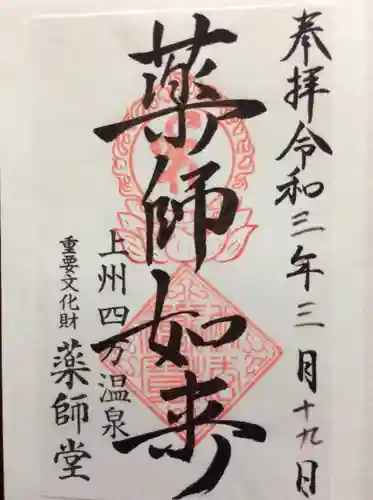 奉拝令和三年三月十九日
薬師如来
上州四万温泉
重要文化財
薬師堂